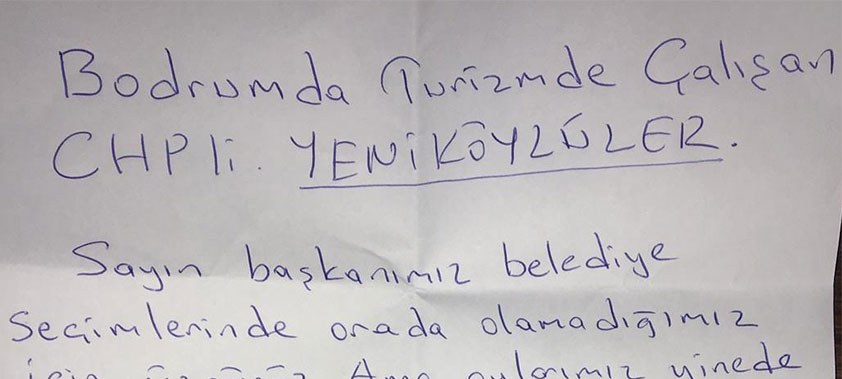 Bodrumda Turizmde Çalışan
CHPli. YENİKÖYLÜLER.
Sayın başkanımız belediye
Seçimlerinde orada olamadığımız
için Ama oylarımız yinede